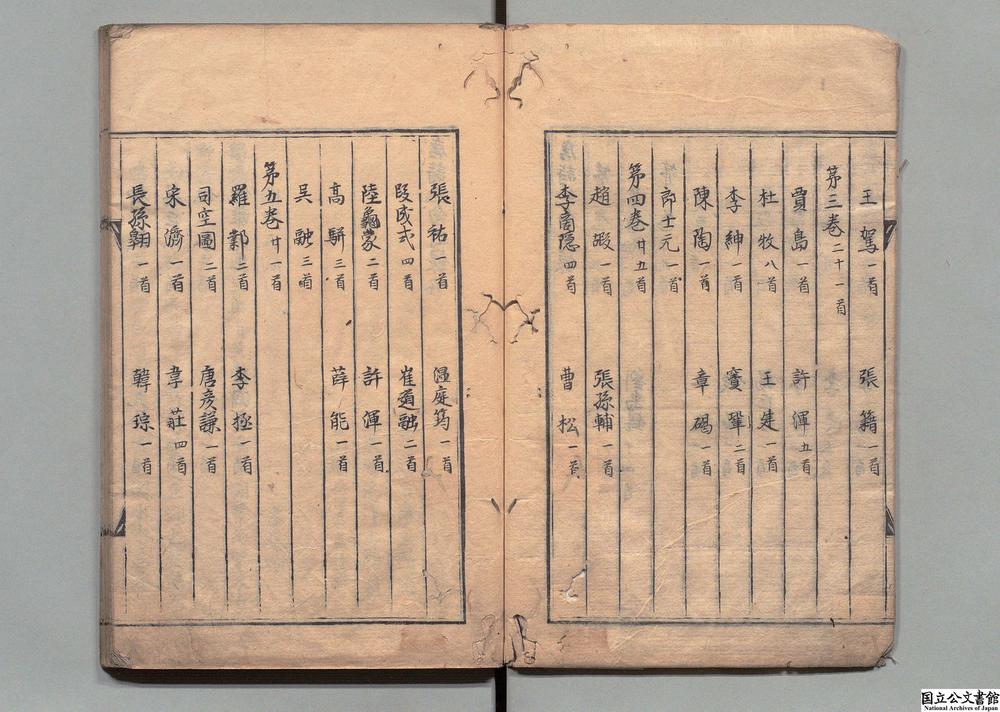 王駕一首 張籍一首
第三卷二十一首
賈島一首 許渾五首
杜牧八首 王建一首
李紳一首 竇鞏二首
陳陶一首 章碣一首
郎士元一首
第四卷廿五首
趙嘏一首 張孫輔一首
李商隠四首 曹松一首
張祐一首 温庭筠一首
段成式四首 崔道融二首
陸龜蒙二首 許渾一首
高駢三首 薛能一首
吳融三首
第五卷廿一首
羅鄴二首 李拯一首
司空圖二首 唐彦謙一首
宋濟一首 韋莊四首
長孫翱一首 韓琮一首
国立公文書館
National Archives of Japan